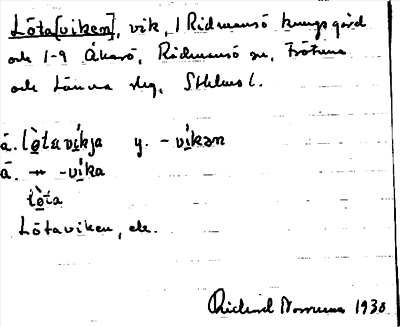 Löta[viken], vik, 1 Rådmansö kungsgård
och 1-9 Åkerö, Rådmansö sn, Frötuna
och Länna skg, Sthlms l.
ä. lò̱tavi̱kja y. -vi̱kən
ä. -vi̱ka
lò̱ta
Lötaviken, etc.
Rickard 1930